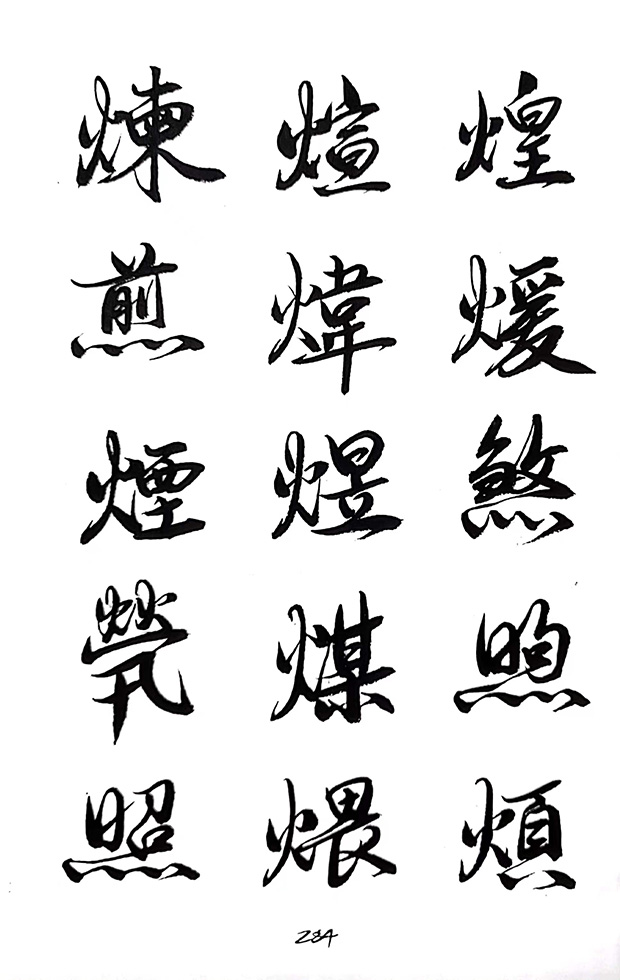 煉 煊 煌
煎 煒 煖
煙 煜 煞
煢 煤 煦
照 煨 煩
284